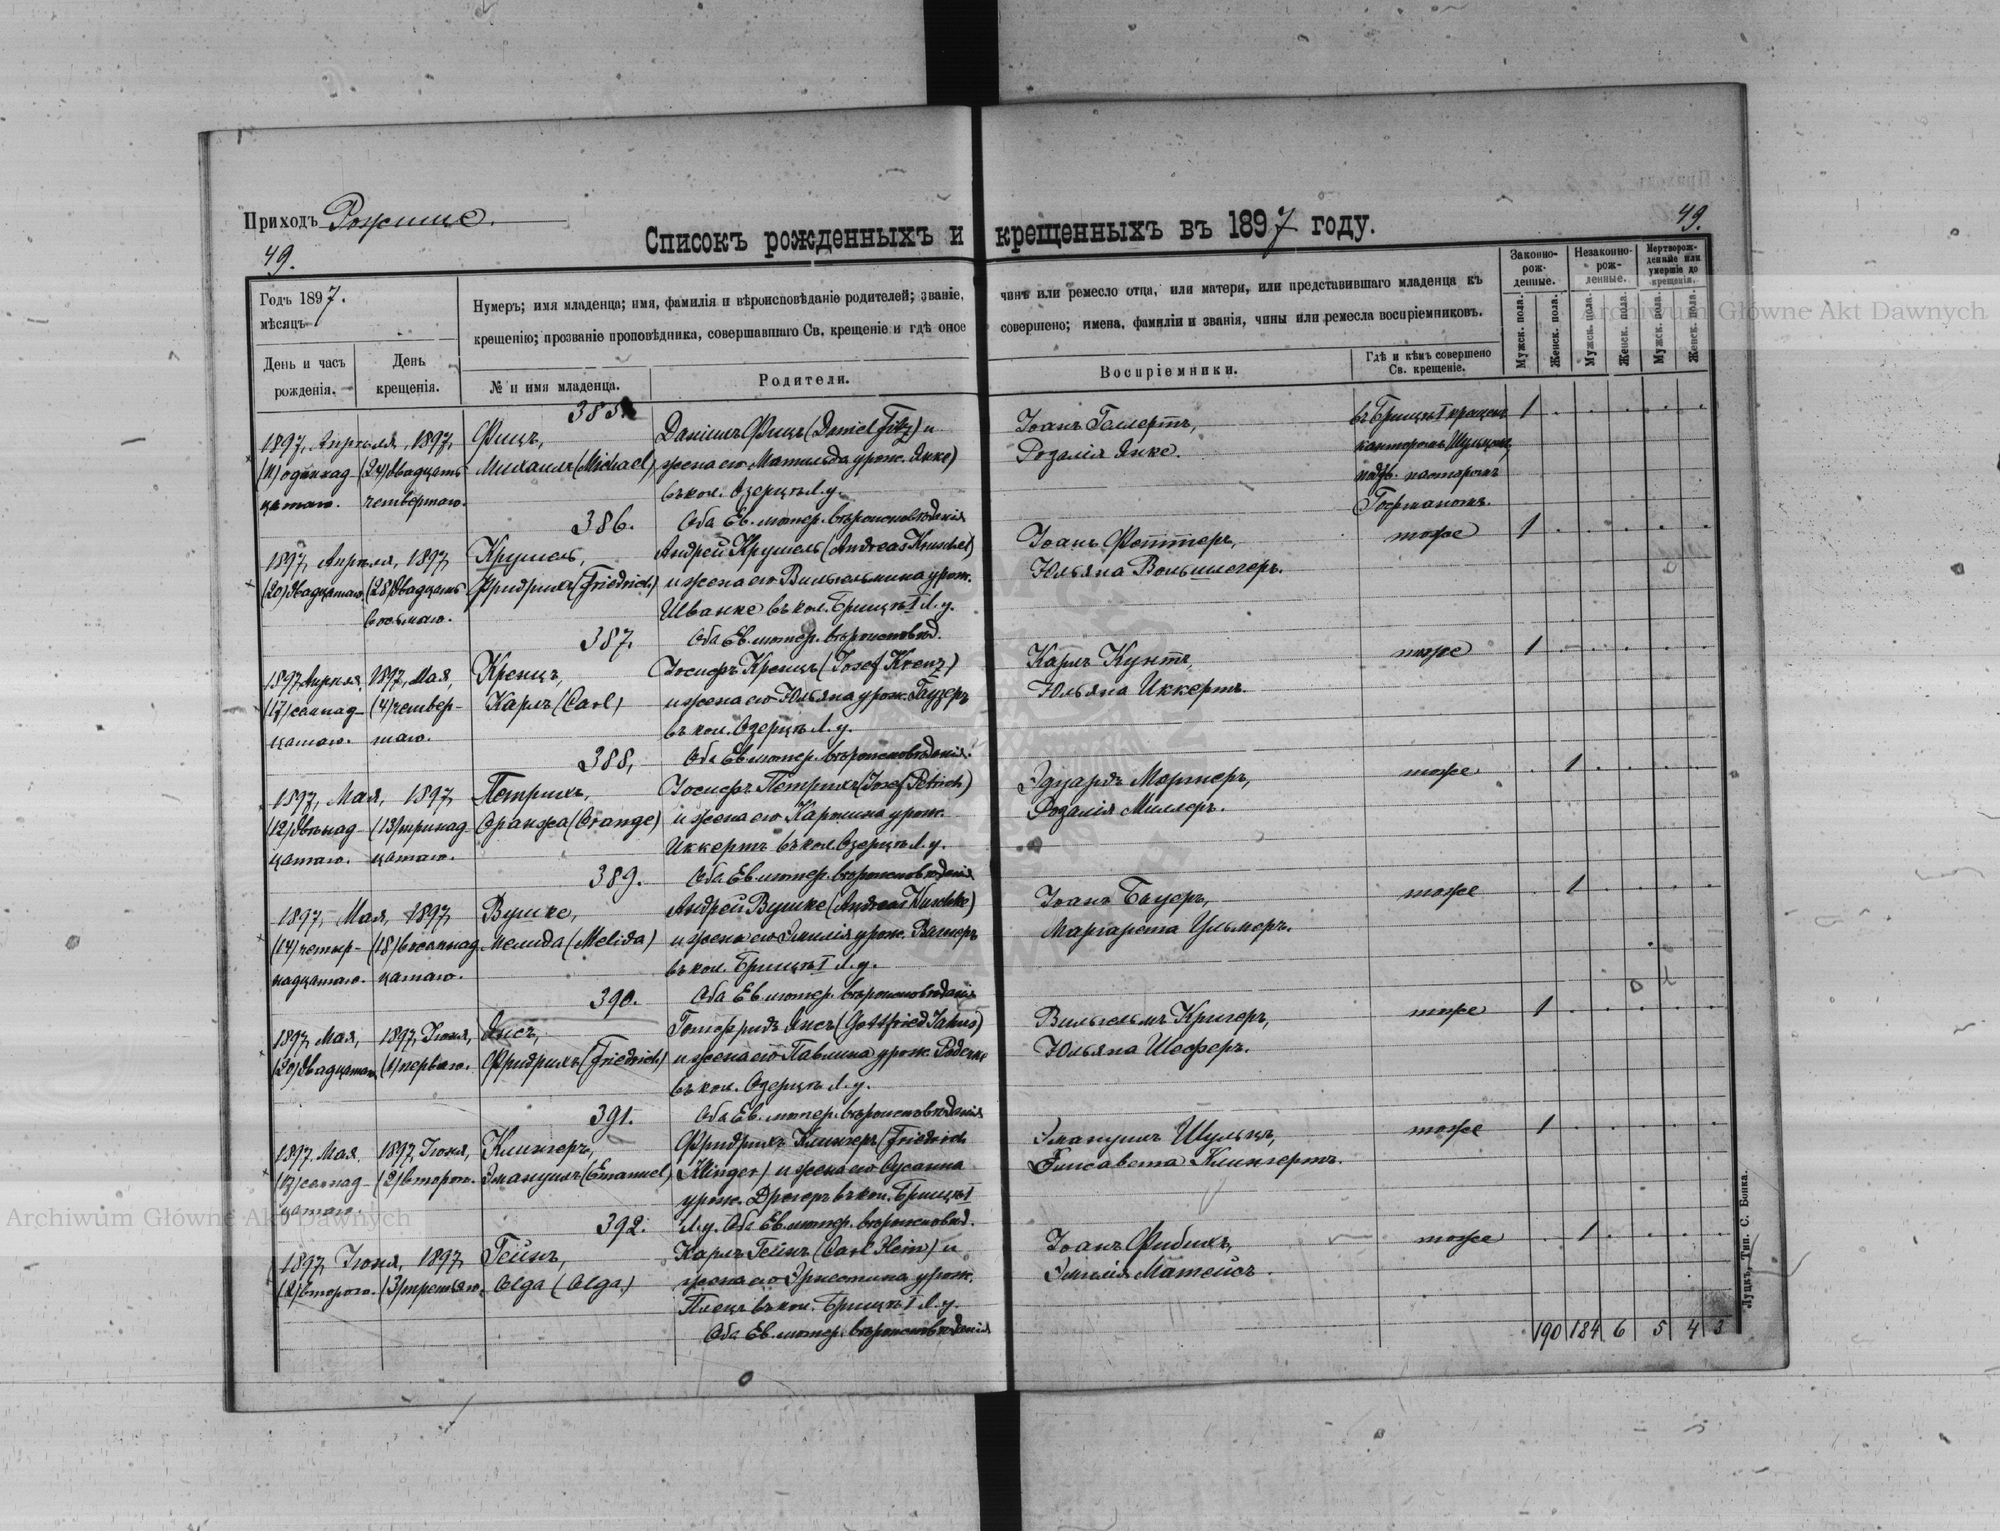 Приходъ Рожище.
49.
49.
Списокъ рожденныхъ и крещенныхъ въ 1897 году.
Годъ 1897.
мѣсяцъ
День и часъ рожденія.
День крещенія.
Нумеръ; имя младенца; имя, фамилія и вѣроисповѣданіе родителей; званіе,
крещенію; прозваніе проповѣдника, совершавшаго Св. крещеніе и гдѣ оное
№ и имя младенца.
Родители.
чинъ или ремесло отца, или матери, или представившаго младенца къ
совершено; имена, фамиліи и званія, чины или ремесла воспріемниковъ.
Воспріемники.
Гдѣ и кѣмъ совершено
Св. крещеніе.
Законно-рож-денные.
Незаконно-рож-денные.
Мертворож-денные или умершіе до крещенія.
Мужск. пола.
Женск. пола.
Мужск. пола.
Женск. пола.
Мужск. пола.
Женск. пола.
385.
1897, Апрѣля, 1897,
(11) одиннад-цатаго.
(24) двадцать четвертаго.
Фицъ,
Михаилъ (Michael)
Даніилъ Фицъ (Daniel Fitz) и
жена его Матильда урож. Янке)
въ кол. Озерцы Л. у.
Оба Ев. лютер. вѣроисповѣданія
Іоанъ Геллертъ,
Розалія Янке.
въ Брищи I крещен.
канторомъ
подт. пасторомъ
Германомъ.
1
386.
1897, Апрѣля, 1897,
(20) двадцатаго
(28) двадцать восьмаго.
Крушель,
Фридрихъ (Friedrich)
Андрей Крушель (Andreas Kruschel)
и жена его Вильгельмина урож.
Иванке въ кол. Брищи I Л. у.
Оба Ев. лютер. вѣроисповѣд.
Іоанъ Феттеръ,
Юльяна Вольшлегеръ.
тоже
1
387.
1897 Апрѣля,
1897, Мая,
(17) семнад-цатаго.
(4) четвер-таго.
Кренцъ,
Карлъ (Carl)
Іосифъ Кренцъ (Josef Krenz)
и жена его Юльяна урож. Гаузеръ
въ кол. Озерцы Л. у.
Оба Ев. лютер. вѣроисповѣданія.
Карлъ Кунтъ,
Юльяна Иккертъ.
тоже
1
388,
1897, Мая, 1897,
(12) двѣнад-цатаго.
(13) тринад-цатаго.
Петрихъ,
Оранжа (Orange)
Іосифъ Петрихъ (Josef Petrich)
и жена его Каролина урож.
Иккертъ въ кол. Озерцы Л. у.
Оба Ев. лютер. вѣроисповѣданія
Эдуардъ Мартеръ,
Розалія Миллеръ.
тоже
1
389.
1897, Мая, 1897,
(14) четыр-надцатаго.
(18) восемнад-цатаго.
Вушке,
Мелида (Melida)
Андрей Вушке (Andreas Wuschke)
и жена его Эмилія урож. Вагнеръ
въ кол. Брищи I Л. у.
Оба Ев. лютер. вѣроисповѣданія
Іоанъ Бауеръ,
Маргарета Ульмеръ.
тоже
1
390.
1897, Мая,
1897, Іюня,
(20) двадцатаго
(1) перваго.
Янсъ,
Фридрихъ (Friedrich)
Готфридъ Янсъ (Gottfried Jahns)
и жена его Павлина урож.
въ кол. Озерцы Л. у.
Оба Ев. лютер. вѣроисповѣданія
Вильгельмъ Кригеръ,
Юльяна Шеферъ.
тоже
1
391.
1897, Мая,
1897, Іюня,
(17) семнад-цатаго.
(2) второго.
Клингеръ,
Эмануилъ (Emanuel)
Фридрихъ Клингеръ (Friedrich
Klinger) и жена его Сусанна
урож. Дрегеръ въ кол. Брищи I
Л. у. Оба Ев. лютер. вѣроисповѣд.
Эмануилъ Шульцъ,
Елисавета Клингертъ.
тоже
1
392.
1897, Іюня, 1897,
(2) второго.
(3) третьяго.
Гейнъ,
Olga (Olga)
Карлъ Гейнъ (Carl Hein) и
жена его Христина урож.
въ кол. Брищи I Л. у.
Оба Ев. лютер. вѣроисповѣданія
Іоанъ Фибихъ,
Эмилія Матейсъ.
тоже
1
190 184 6 5 4 3
Луцкъ, Тип. С. Бонка.
Archiwum Główne Akt Dawnych
Archiwum Główne Akt Dawnych